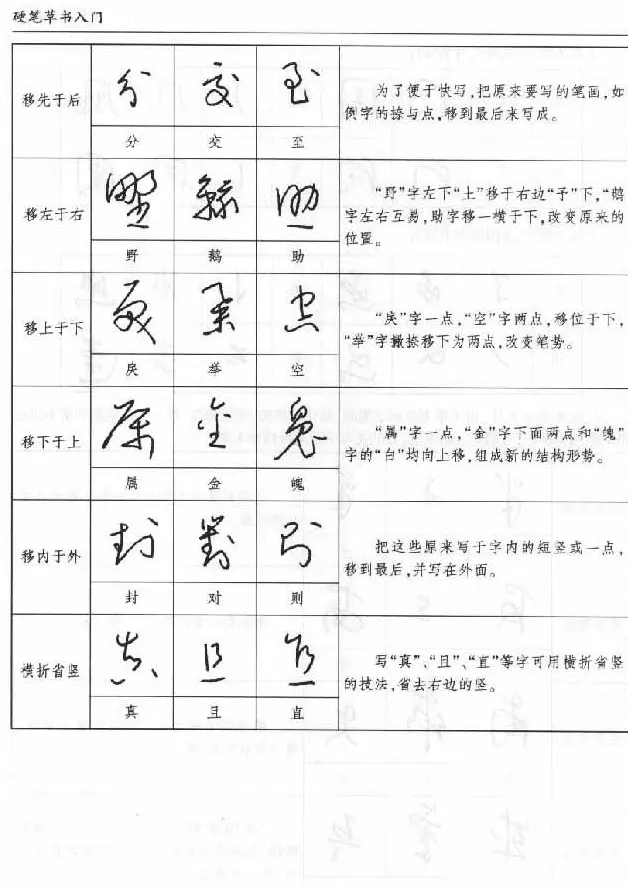 硬笔草书入门
移先于后
分 交 至
为了便于快写,把原来要写的笔画,如
例字的捺与点,移到最后来写成。
移左于右
野 鹅 助
“野”字左下“土”移于右边“予”下,“鹅
字左右互易,助字移一横于下,改变原来的
位置。
移上于下
戾 举 空
“戾”字一点,“空”字两点,移位于下,
“举”字撇捺移下为两点,改变笔势。
移下于上
属 金 魄
“属”字一点,“金”字下面两点和“魄”
字的“白”均向上移,组成新的结构形势。
移内于外
封 对 则
把这些原来写于字内的短竖或一点,
移到最后,并写在外面。
横折省竖
真 且 直
写“真”、“且”、“直”等字可用横折省竖
的技法,省去右边的竖。